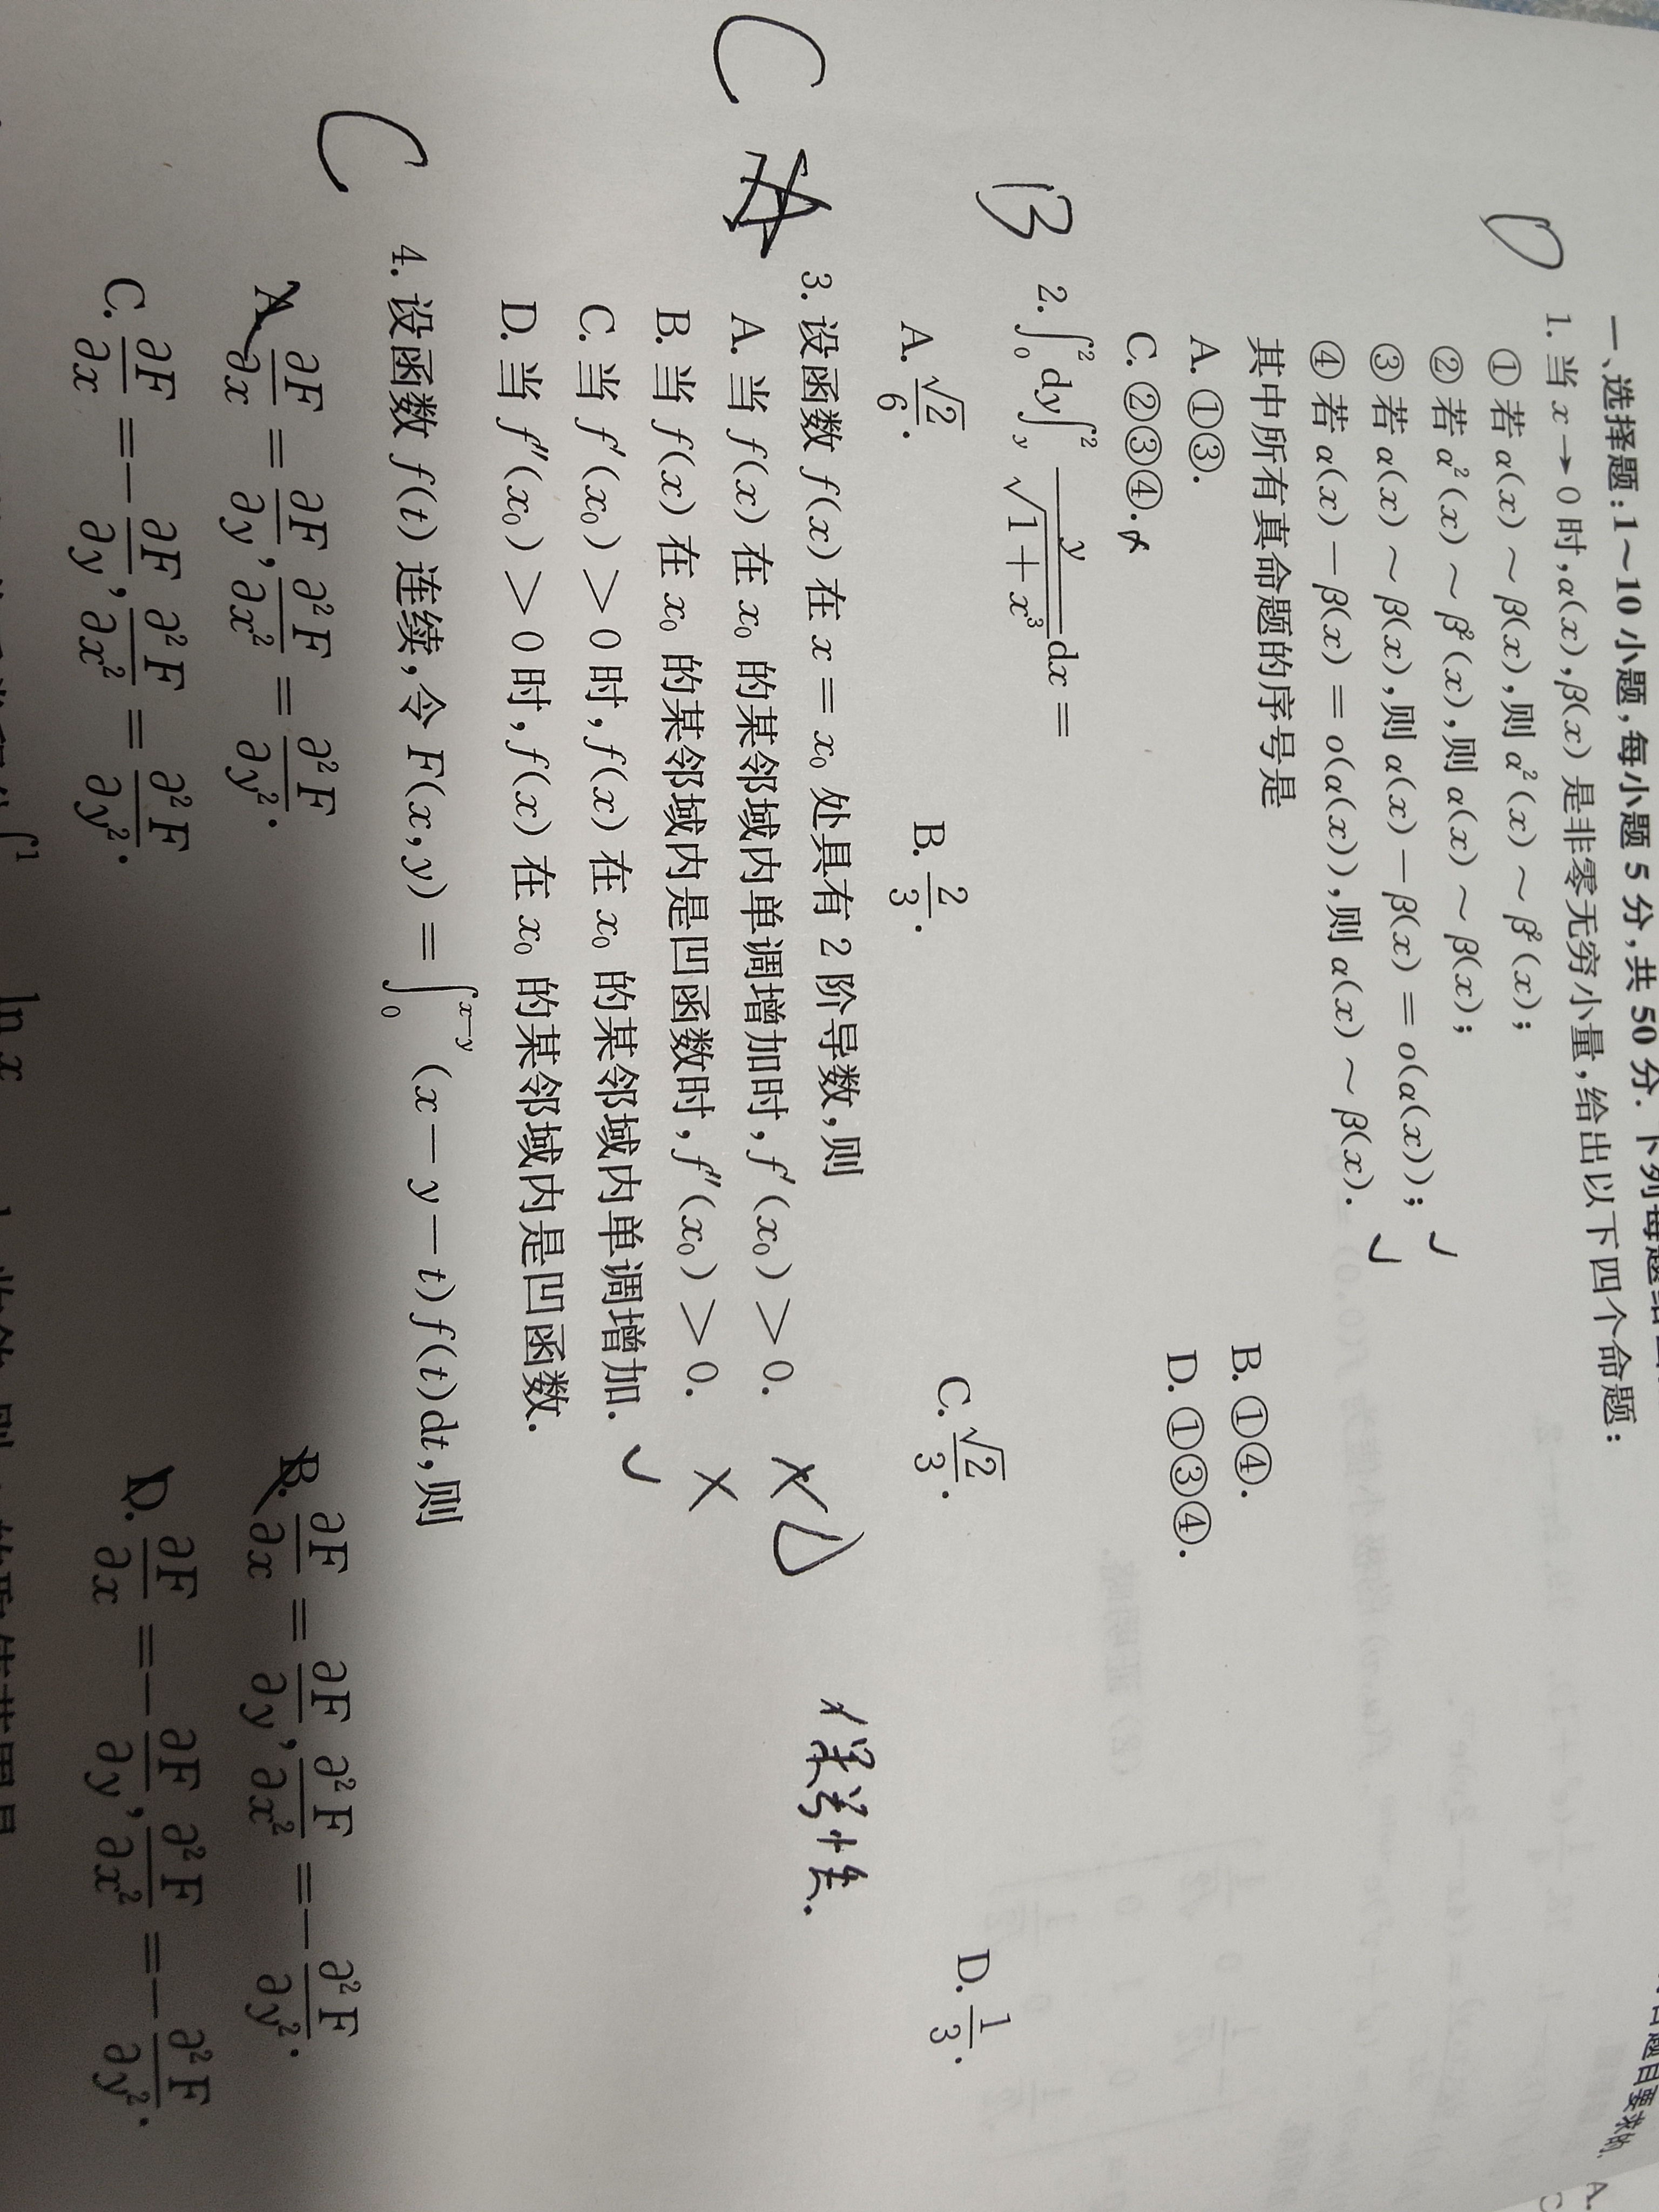 一、选择题:1~10小题,每小题5分,共50分.下列每题给出
目要求的.
1. 当 x→0 时,α(x),β(x) 是非零无穷小量,给出以下四个命题:
① 若 α(x) ~ β(x),则 α²(x) ~ β²(x);
② 若 α²(x) ~ β²(x),则 α(x) ~ β(x);
③ 若 α(x) ~ β(x),则 α(x) − β(x) = o(α(x)); ✓
④ 若 α(x) − β(x) = o(α(x)),则 α(x) ~ β(x). ✓
其中所有真命题的序号是
D
A. ①③. B. ①④.
C. ②③④. D. ①③④.
B 2. ∫₀² dy ∫_y² y/√(1+x³) dx =
A. √2/6. B. 2/3. C. √2/3. D. 1/3.
C A 3. 设函数 f(x) 在 x = x₀ 处具有 2 阶导数,则
A. 当 f(x) 在 x₀ 的某邻域内单调增加时,f′(x₀) > 0. ×
B. 当 f(x) 在 x₀ 的某邻域内是凹函数时,f″(x₀) > 0. ×
C. 当 f′(x₀) > 0 时,f(x) 在 x₀ 的某邻域内单调增加. ✓
D. 当 f″(x₀) > 0 时,f(x) 在 x₀ 的某邻域内是凹函数.
保号性.
C 4. 设函数 f(t) 连续,令 F(x,y) = ∫₀^(x−y) (x − y − t) f(t)dt,则
A. ∂F/∂x = ∂F/∂y, ∂²F/∂x² = ∂²F/∂y². B. ∂F/∂x = ∂F/∂y, ∂²F/∂x² = −∂²F/∂y².
C. ∂F/∂x = −∂F/∂y, ∂²F/∂x² = ∂²F/∂y². D. ∂F/∂x = −∂F/∂y, ∂²F/∂x² = −∂²F/∂y².
∫ 1 ln x